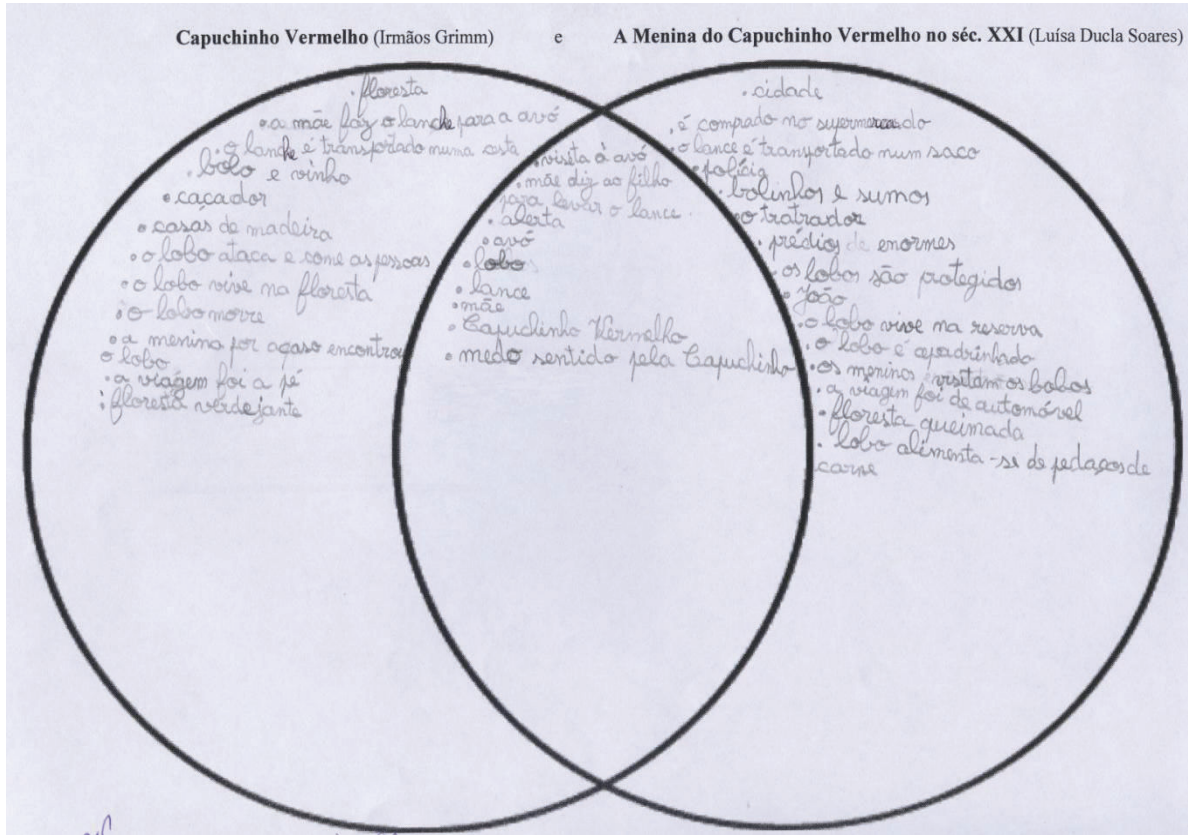 Capuchinho Vermelho (Irmãos Grimm) e A Menina do Capuchinho Vermelho no séc. XXI (Luísa Ducla Soares)
. floresta
. a mãe faz o lanche para a avó
. o lanche é transportado numa cesta
. bolo e vinho
. caçador
. casas de madeira
. o lobo ataca e come as pessoas
. o lobo vive na floresta
. o lobo morre
. a menina por acaso encontrou
o lobo
. a viagem foi a pé
. floresta verdejante
. visita à avó
. mãe diz ao filho
para levar o lance.
. alerta
. avó
. lobos
. lance
. mãe
. Capuchinho Vermelho
. medo sentido pela Capuchinho
. cidade
. é comprado no supermercado
. o lance é transportado num saco
. polícia
. bolinhos e sumos
. o tratrador
. prédios de enormes
. os lobos são protegidos
. João
. o lobo vive na reserva
. o lobo é apadrinhado
. os meninos visitam os bobos
. a viagem foi de automóvel
. floresta queimada
. lobo alimenta-se de pedaços de
carne